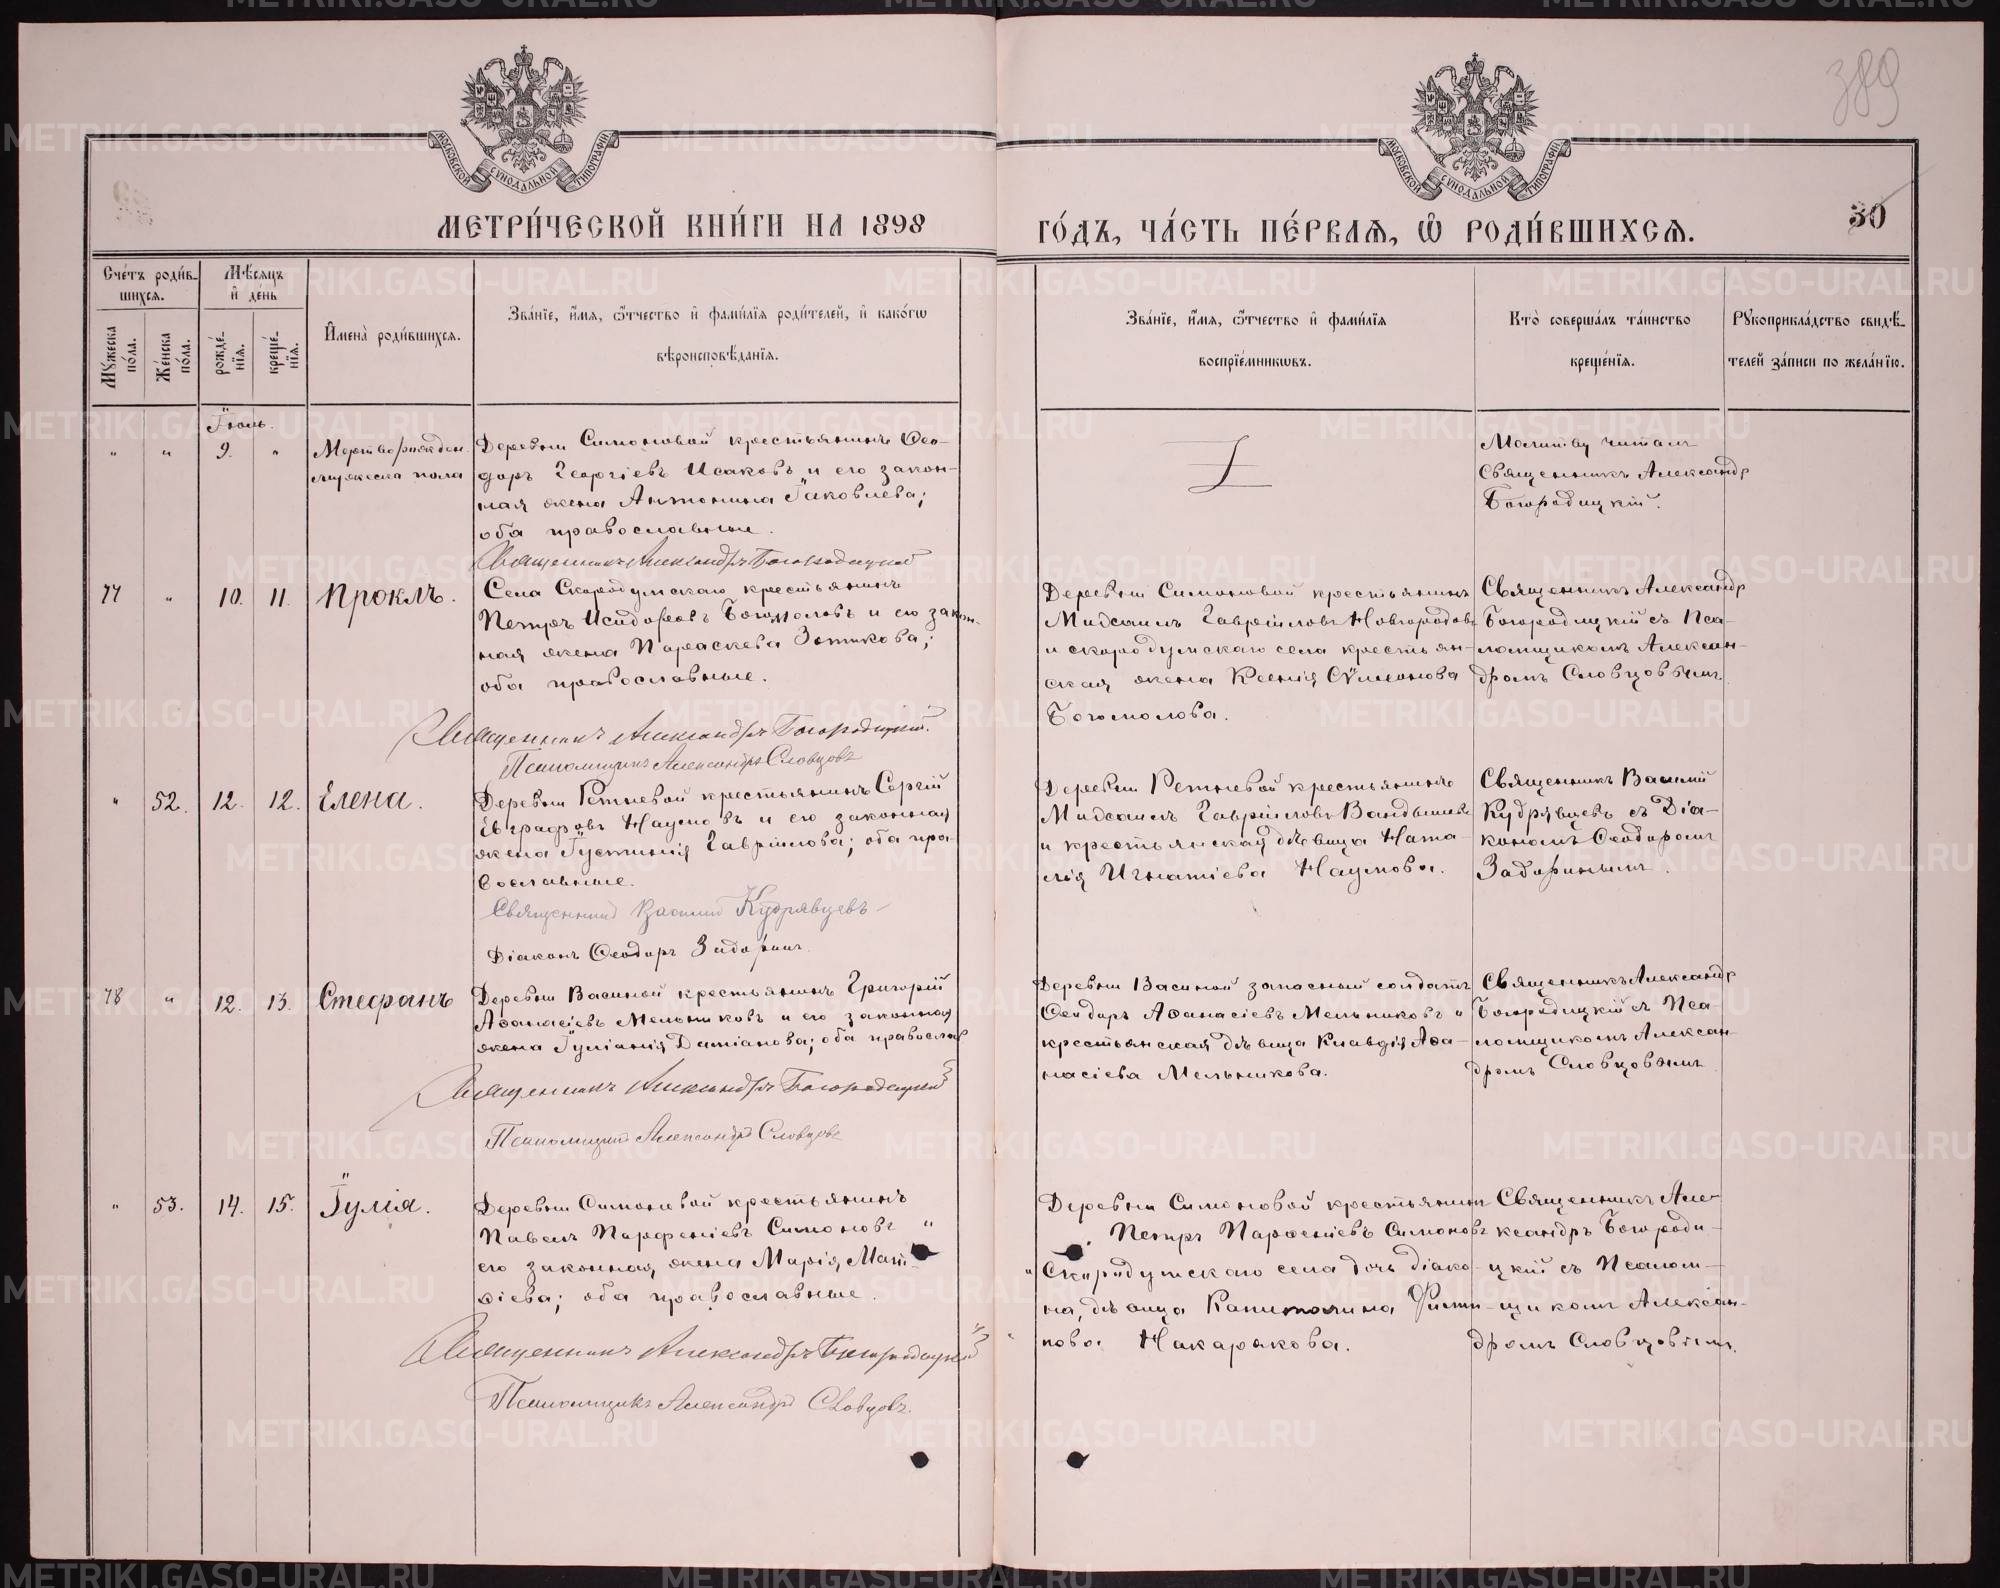 389
МОСКОВСКОЙ СѴНОДАЛЬНОЙ ТИПОГРАФІИ
МОСКОВСКОЙ СѴНОДАЛЬНОЙ ТИПОГРАФІИ
МЕТРИ́ЧЕСКОЙ КНИ́ГИ НА 1898
ГО́ДЪ, ЧА́СТЬ ПЕ́РВАѦ, Ѽ РОДИ́ВШИХСѦ.
30
Сче́тъ роди́в-
шихсѧ.
Мѣсѧцъ
и де́нь
Мꙋжеска
по́ла.
Же́нска
по́ла.
рожде́-
нїѧ.
креще́-
нїѧ.
Имена̀ роди́вшихсѧ.
Зва́нїе, и́мѧ, ѻ҆́тчество и фами́лїѧ роди́телей, и како́гѡ
вѣроисповѣ́данїѧ.
Зва́нїе, и́мѧ, ѻ҆́тчество и фами́лїѧ
воспрїе́мникѡвъ.
Кто̀ соверша́лъ та́инство
креще́нїѧ.
Рꙋкоприкла́дство свидѣ́-
телей за́писи по жела́нїю.
Іюль.
" " 9. "
Мертворожден.
мужеска пола
Деревни Симоновой крестьянинъ Ѳео-
доръ Георгіевъ Исаковъ и его закон-
ная жена Антонина Іаковлева;
оба православные.
Священникъ Александръ Богородицкій
Молитву читалъ
Священникъ Александр
Богородицкій.
77 " 10. 11. Проклъ.
Села Скородумскаго крестьянинъ
Петръ Исидоровъ Богомоловъ и его закон-
ная жена Параскева Зотикова;
оба православные.
Священникъ Александръ Богородицкій.
Псаломщикъ Александръ Словцовъ
Деревни Симоновой крестьянинъ
Мидсаилъ Гавріиловъ Новгородовъ
и скородумскаго села крестьян-
ская жена Ксенія Сѵмеонова
Богомолова.
Священникъ Александр
Богородицкій съ Пса-
ломщикомъ Алексан-
дромъ Словцовымъ
" 52. 12. 12. Елена.
Деревни Ретневой крестьянинъ Сергій
Евграфовъ Наумовъ и его законная
жена Іустинія Гавріилова; оба пра-
вославные.
Священникъ Василій Кудрявцевъ
Діаконъ Ѳеодоръ Задоринъ
Деревни Ретневой крестьянинъ
Мидсаилъ Гавріиловъ Вандышевъ
и крестьянская дѣвица Ната-
лія Игнатіева Наумова.
Священникъ Василій
Кудрявцевъ съ Діа-
кономъ Ѳеодоромъ
Задоринымъ.
78 " 12. 13. Стефанъ
Деревни Васиной крестьянинъ Григорій
Аѳанасіевъ Мельниковъ и его законная
жена Іуліанія Даміанова; оба православ
Священникъ Александръ Богородицкій
Псаломщикъ Александръ Словцовъ
Деревни Васиной запасный солдатъ
Ѳеодоръ Аѳанасіевъ Мельниковъ и
крестьянская дѣвица Клавдія Аѳа-
насіева Мельникова.
Священникъ Александр
Богородицкій съ Пса-
ломщикомъ Алексан-
дромъ Словцовымъ
" 53. 14. 15. Іулія.
Деревни Симоновой крестьянинъ
Павелъ Парѳеніевъ Симоновъ "
его законная жена Марія Мат-
ѳіева; оба православные.
Священникъ Александръ Богородицкій
Псаломщикъ Александръ Словцовъ.
Деревни Симоновой крестьянин
Петръ Парѳеніевъ Симоновъ
Скородумскаго села дочь діако-
на, дѣвица Капитолина Филип-
пова Накарякова.
Священникъ Але-
ксандръ Богороди-
цкій съ Псалом-
щикомъ Алексан-
дромъ Словцовымъ.
METRIKI.GASO-URAL.RU